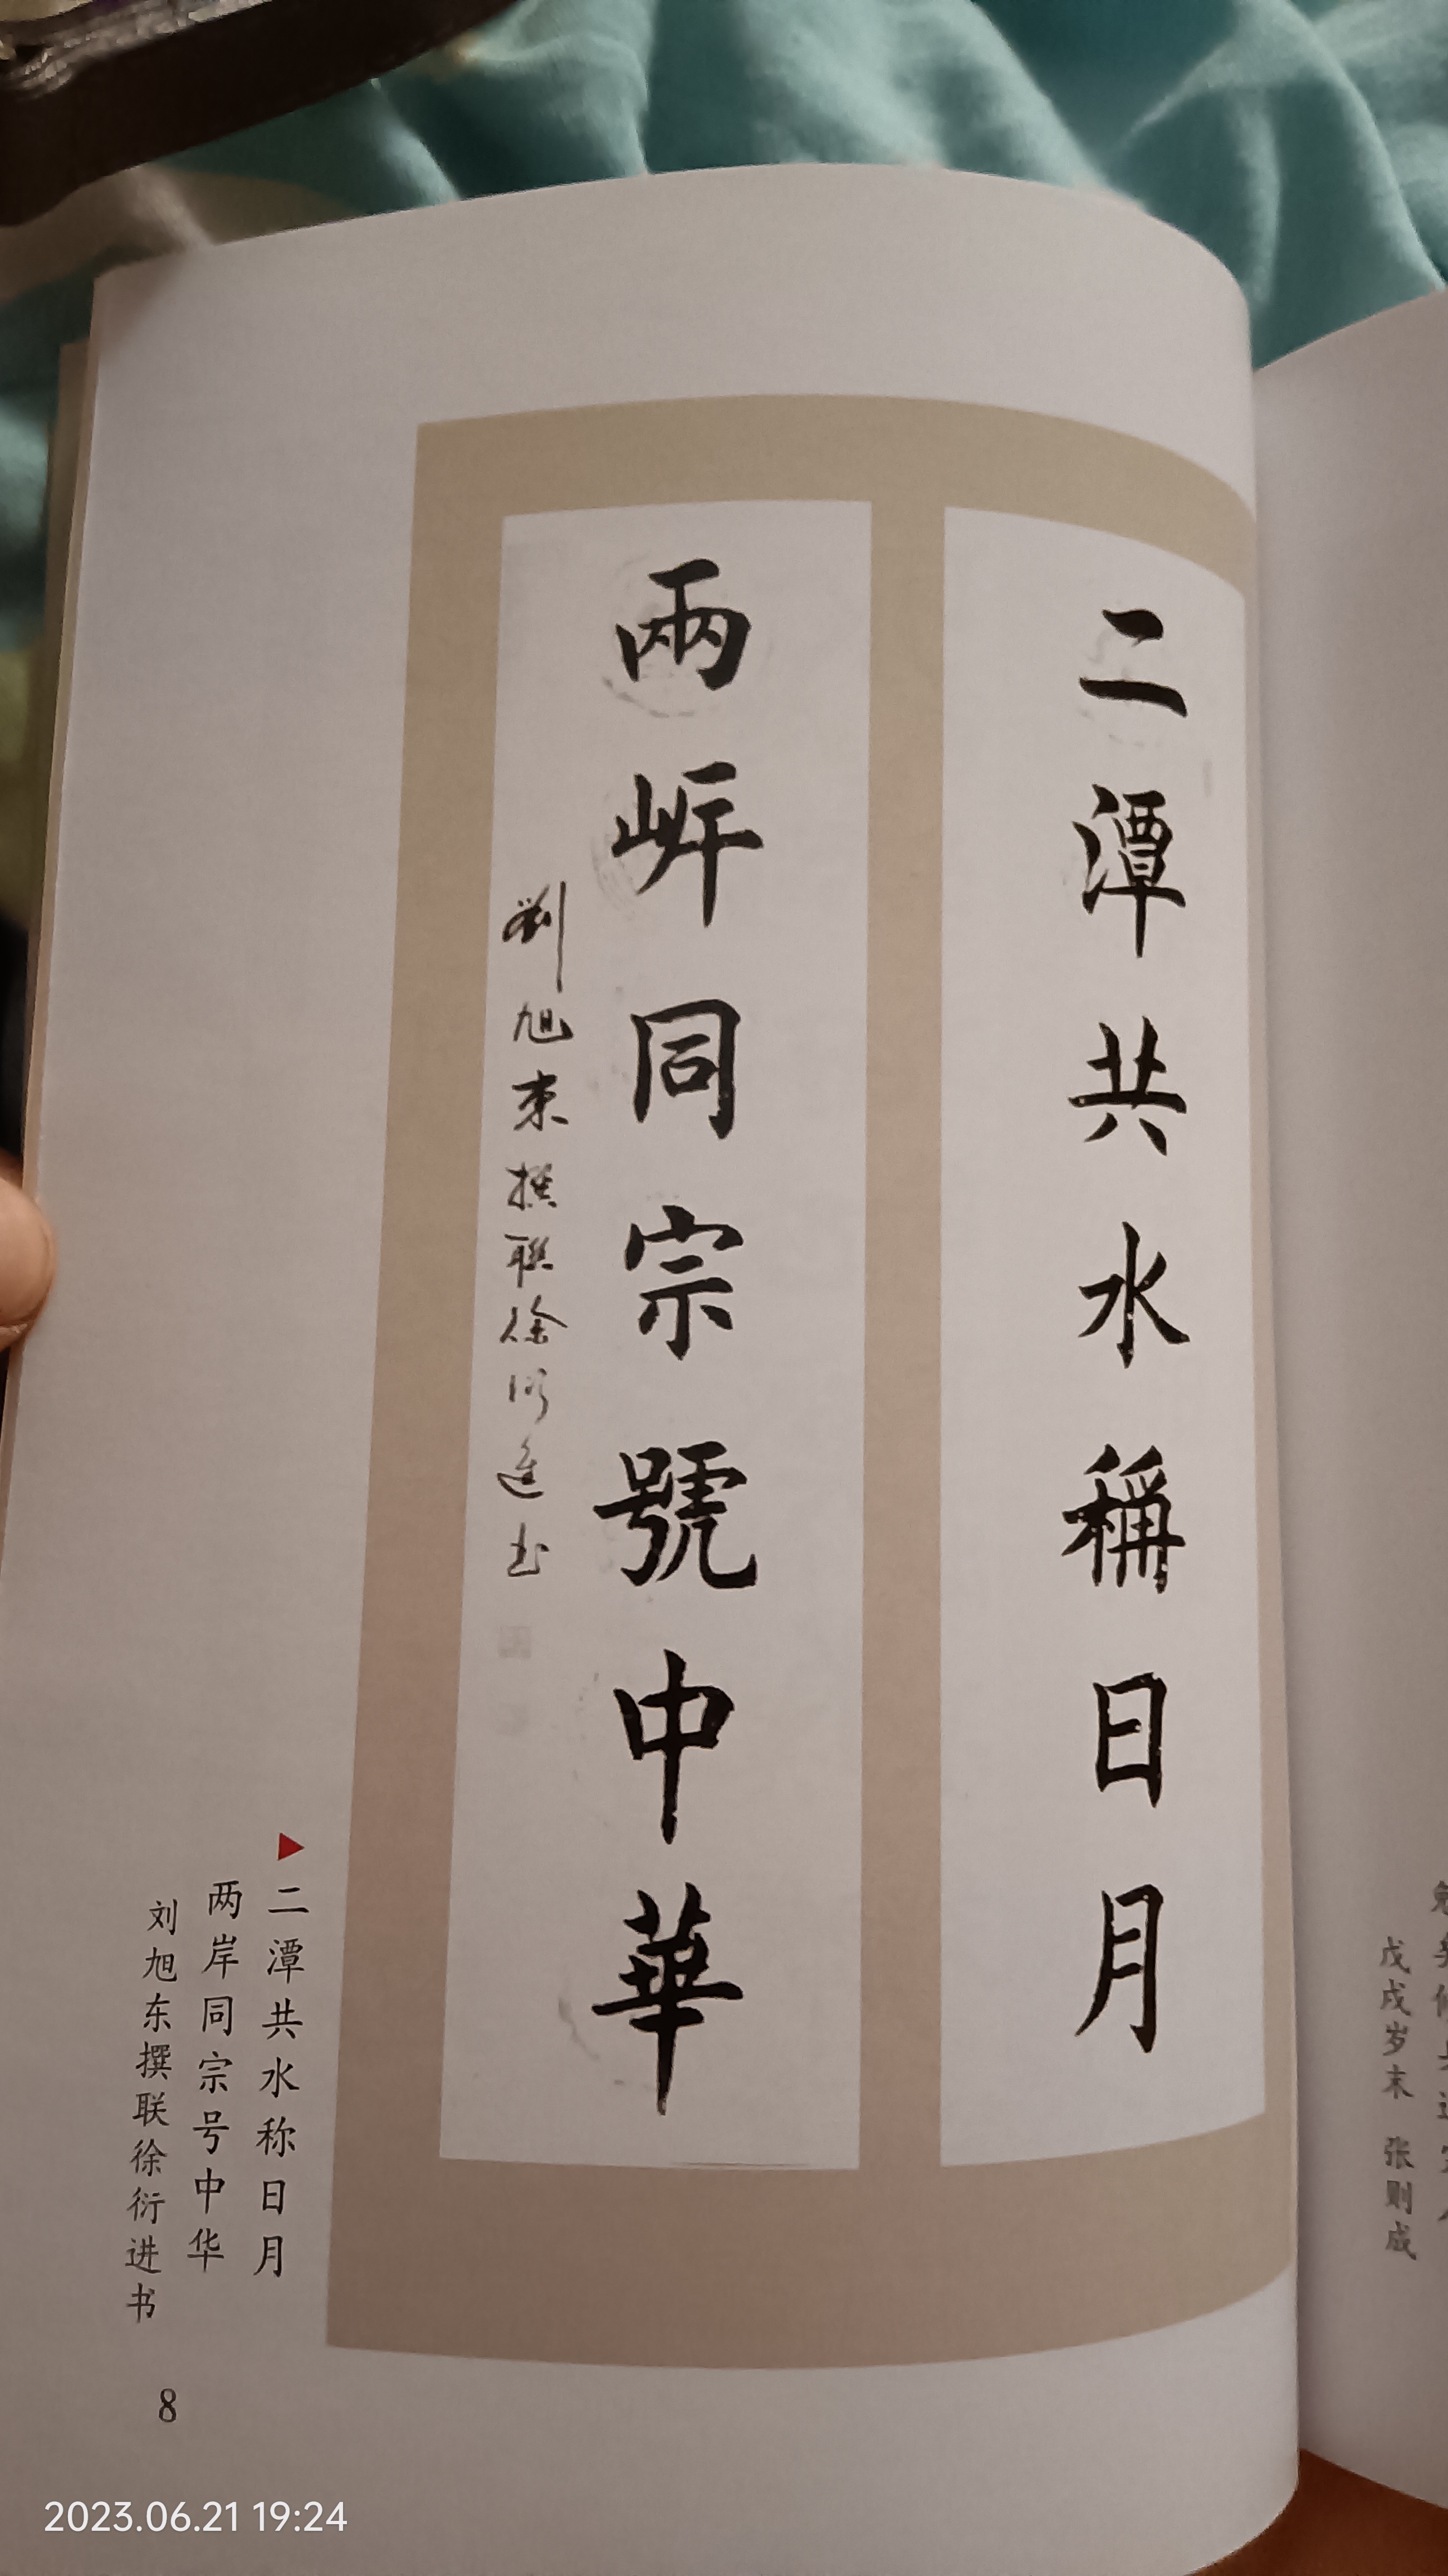 二潭共水稱日月
兩岸同宗號中華
劉旭東撰聯徐衍進书
二潭共水称日月
两岸同宗号中华
刘旭东撰联徐衍进书
8
戊戌岁末 张则成
2023.06.21 19:24